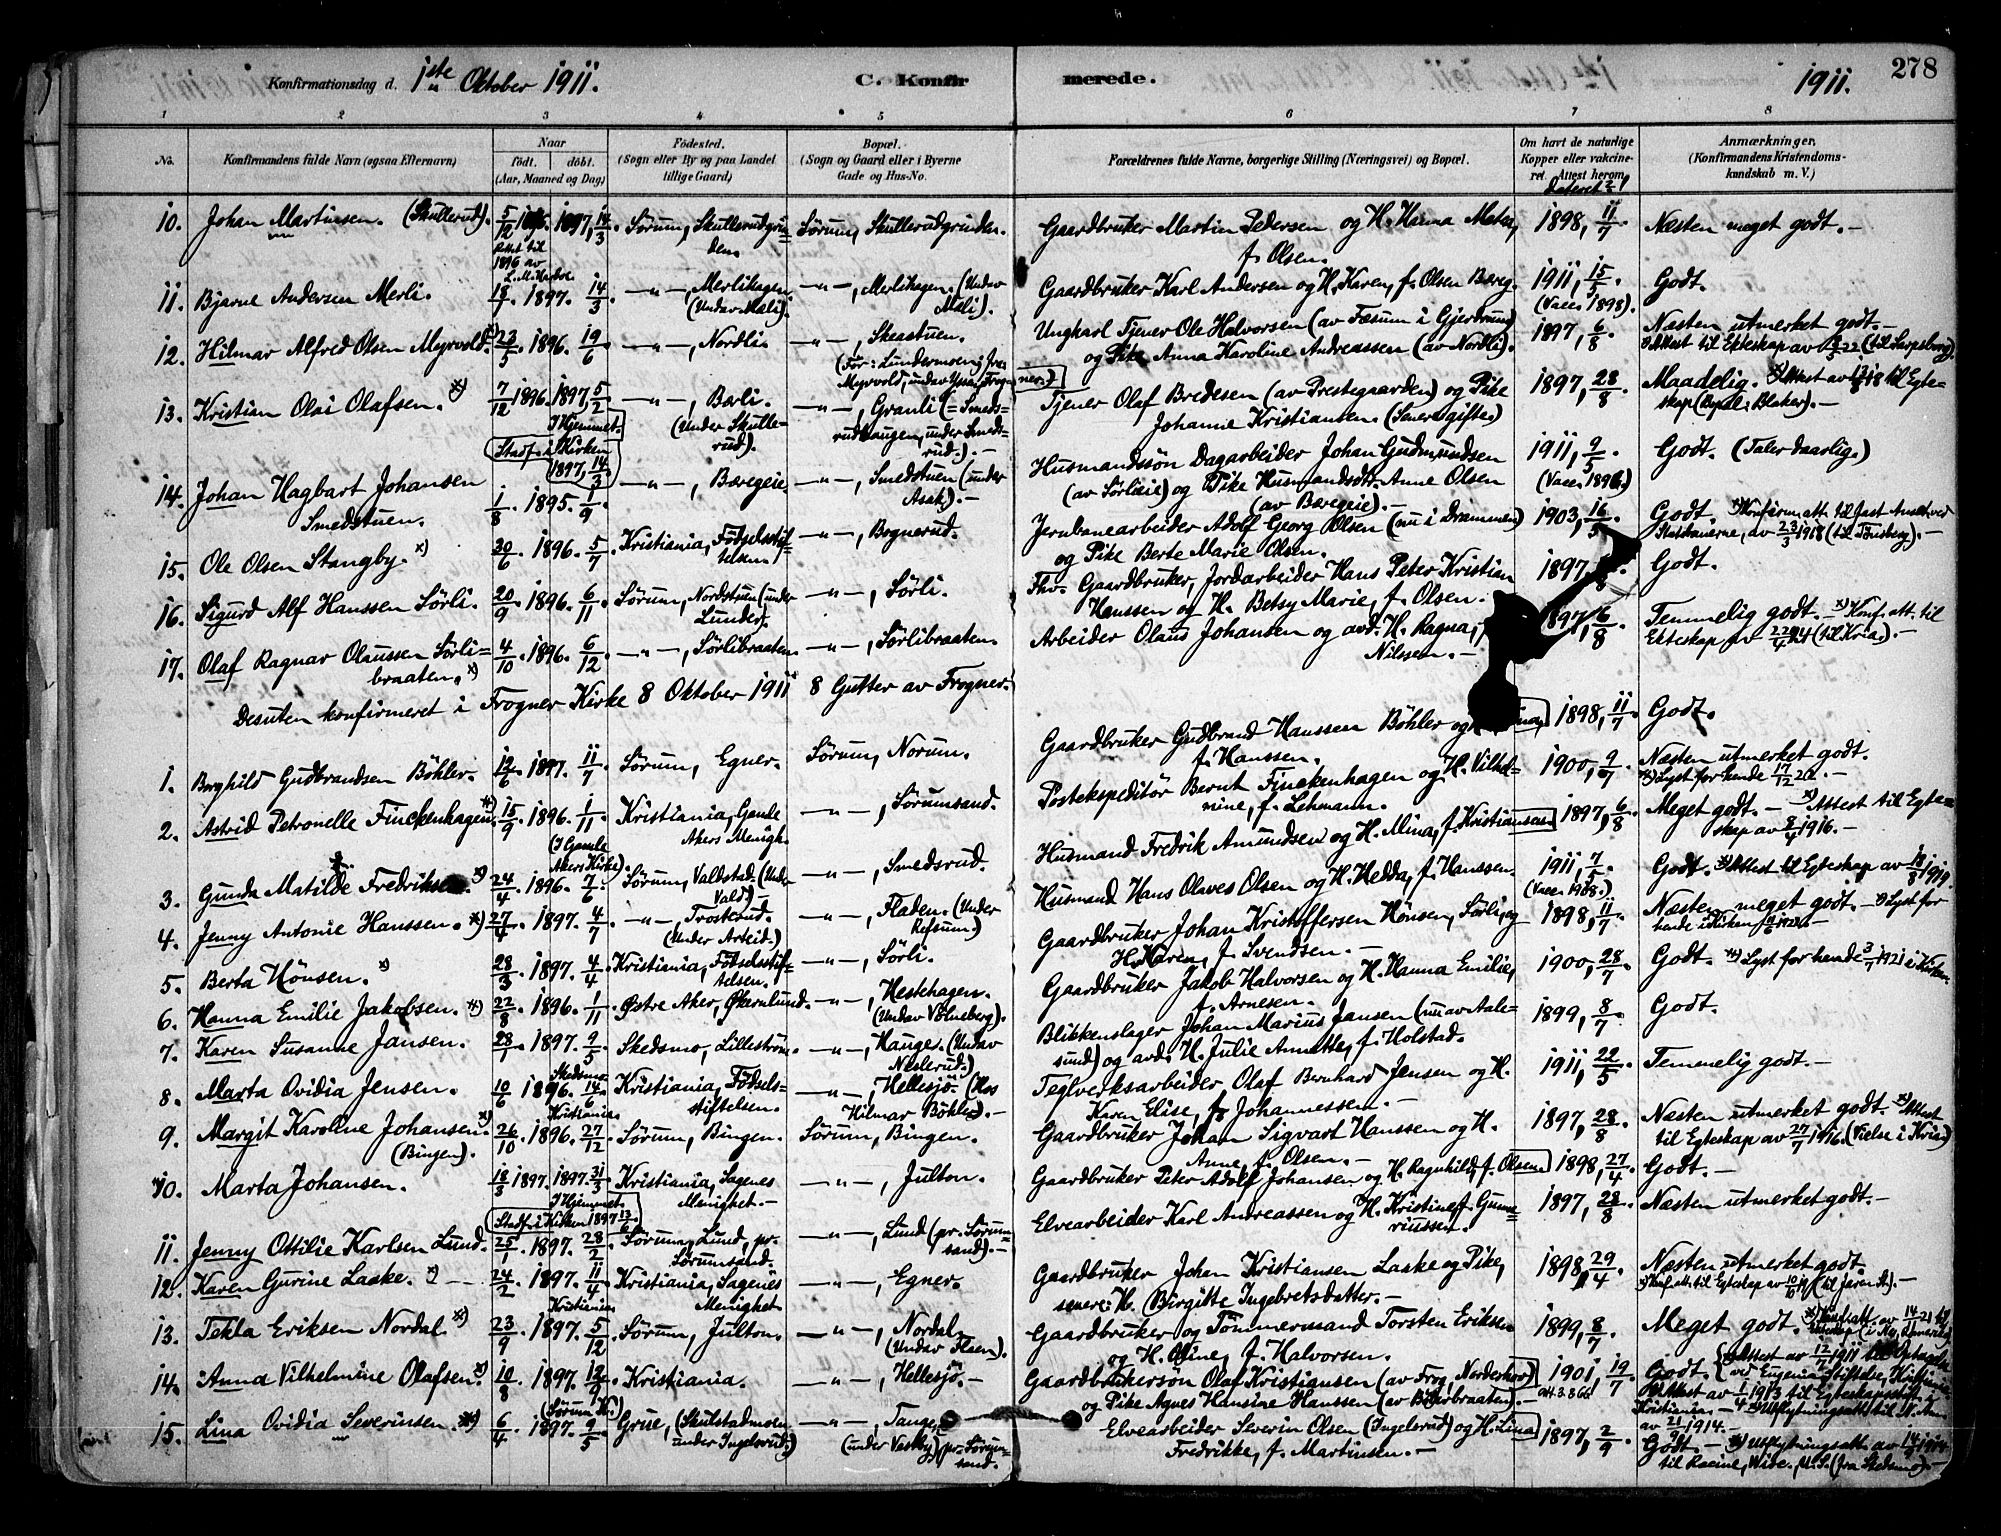 278
Konfirmationsdag d. 1ste Oktober 1911. C. Konfir merede. 1911.
1 2 3 4 5 6 7 8
No. Konfirmandens fulde Navn (ogsaa Efternavn) Naar født, døbt. (Aar, Maaned og Dag) Fødested. (Sogn eller By og paa Landet tillige Gaard) Bopæl. (Sogn og Gaard eller i Byerne Gade og Hus-No. Forældrenes fulde Navne, borgerlige Stilling (Næringsvei) og Bopæl. Om havt de naturlige Kopper eller vakcineret. Attest herom, dateret Anmærkninger, (Konfirmandens Kristendomskundskab m. V.)
10. Johan Martinsen. (Skullerud). 5/12 1896 1897, 14/3. Sørum, Skullerudgrinden. Sørum, Skullerudgrinden. Gaardbruker Martin Pedersen og H. Hanna Matea, f. Olsen. 1898, 11/7. Næsten meget godt. –
11. Bjarne Andersen Merli. 18/7. 1897. 14/3 –"–, Merlihagen (Under Mæli). –"–, Merlihagen (Under Mæli). Gaardbruker Karl Andersen og H. Karen, f. Olsen Bereg. 1911, 15/5 (Vacc. 1898). Godt.
12. Hilmar Alfred Olsen Myrvold. 23/5 1896. 19/6 –"–, Nordli. –"–, Skesstuen. Ungkarl Tjener Ole Halvorsen (av Fæsum i Gjerdrum) og Pike Anna Karoline Andreassen (av Nordli). 1897, 6/8 Næsten utmerket godt. – Attest til Ekteskap av 22 (til Sarpsborg).
13. Kristian Olai Olafsen. x) 7/12 1896. 1897, 5/2 I Hjemmet. Stadf. i Kirken 1897, 14/3 –"–, Berli (Under Skullerud). –"–, Granli (= Smedsrudhaugen, under Smedsrud.). – Tjener Olaf Bredesen (av Prestegaarden) og Pike Johanne Kristiansen (Senere gifte.) 1897, 28/8 Maadelig. x) Attest av 18 til Egteskap (Bopæl: Blaker). –
14. Johan Hagbart Johansen Smedstuen. 1/8. 1895. 1/9 –"–, Bæregeie. –"–, Smedstuen (under Asak). – Husmandssön Dagarbeider Johan Gudmundsen (av Sørlieie) og Pike Husmandsdt. Anne Olsen (av Bæregeie). – 1911, 9/5 (Vacc. 1896.) Godt. (Taler daarlig.)
15. Ole Olsen Stangby. x) 30/6 1896. 5/7 Kristiania, Fødselsstiftelsen. –"–, Bognerud. Jernbanearbeider Adolf Georg Olsen (nu i Drammen) og Pike Berte Marie Olsen. 1903, 16/5 Godt. x) Konfirm. att. til fast Ansat ved Statsbanerne, av 23/3 1918 (til Tønsberg). –
16. Sigurd Alf Hanssen Sörli. 20/9 1896. 6/11 Sørum, Nordstun (under Lunder). –"–, Sörli. Fhv. Gaardbruker, Jordarbeider Hans Peter Kristian Hanssen og H. Betsy Marie, f. Olsen. 1897, Godt.
17. Olaf Ragnar Olaussen Sörlibraaten. x) 4/10 1896. 6/12 –"–, Sörlibraaten. –"–, Sörlibraaten. Arbeider Olaus Johansen og avd. H. Ragna, Nilssen. – 1897, 6/8 Temmelig godt. – x) Konf. att. til Ekteskap av 22/4 24 (til Kria). –
Desuten konfirmeret i Frogner Kirke 8 Oktober 1911 8 Gutter av Frogner.
1. Borghild Gudbrandsen Böhler. 12/6 1897. 11/7 Sörum, Egner. Sörum, Norum. Gaardbruker Gudbrand Hanssen Böhler og f. Hanssen. 1898, 11/7. Godt.
2. Astrid Petronelle Finckenhagen. x) 15/9 1896. 1/11 (I Gamle Akers Kirke). Kristiania, Gamle Akers Menigh. –"–, Sörumsand. Postekspeditör Bernt Finckenhagen og H. Vilhelmine, f. Lehmann. 1900, 9/7 Næsten utmerket godt. x) Lyst for hende 17/12 22. –
3. Gunda Matilde Fredriksen. x) 24/4 1896. 7/6 Sørum, Valdstad. (Under Vald) –"–, Smedsrud. Husmand Fredrik Amundsen og H. Mina, f. Kristiansen 1897, 6/8 Meget godt. – x) Attest til Egteskap av 8/4 1916. –
4. Jenny Antonie Hanssen. x) 27/4 1897. 4/7 –"–, Trosterud. (Under Arteid.) –"–, Fladen. (Under Refsum.) Husmand Hans Olaves Olsen og H. Hedda, f. Hanssen. 1911, 7/5 (Vacc. 1908.) Godt. x) Attest til Egteskap av 18/8 1919.
5. Berta Hönsen. x) 28/3 1897. 4/4 Kristiania, Födselsstiftelsen. –"–, Sörli. Gaardbruker Johan Kristoffersen Hönsen, Sörli, og H. Karen, f. Svendsen. – 1898, 11/7 Næsten meget godt. – x) Lyst for hende i Kirken
6. Hanna Emilie Jakobsen. x) 22/8 1896. 1/11 Østre Aker, Økernlund. –"–, Hestehagen. (Undav Vølneberg). Gaardbruker Jakob Halvorsen og H. Hanna Emilie, f. Arnesen. 1900, 28/7 Godt. x) Lyst for hende 3/7 1921 i Kirken
7. Karen Susanne Jansen. 28/1 1897. 9/5 Skedsmo Skedsmo, Lilleström. –"–, Hauge. (Undav Neslerud.) Blikkenslager Johan Marius Jansen (nu av Aalesund) og avd. H. Julie Annette, f. Holstad. 1899, 8/7 Godt.
8. Marta Ovidia Jensen. 10/6 1896. 14/6 Kristiania Kristiania, Födselsstiftelsen. –"–, Hellesjö. (Hos Hilmar Böhler). – Teglverksarbeider Olaf Bernhard Jensen og H. Karen Elise, f. Johannessen. – 1911, 22/5 Temmelig godt. –
9. Margit Karoline Johansen. x) (Bingen). 26/10 1896. 27/12 Sörum, Bingen. Sörum, Bingen. Gaardbruker Johan Sigvart Hanssen og H. Anne, f. Olsen. – 1897, 28/8 Næsten utmerket godt. x) Attest til Egteskap av 27/7 1916. (Vielse i Kria)
10. Marta Johansen. 18/3 1897. 1897. 31/3 I Hjemmet. Stadf. i Kirken 1897 13/6 Kristiania, Sagenes Menighet. – –"–, Julton. Gaardbruker Peter Adolf Johansen og H. Ragnhild, f. Olsen 1898, 27/4 Godt. –
11. Jenny Ottilie Karlsen Lund. 25/1 1897. 28/2 Sørum, Lund, pr. Sörumsand. –"–, Lund (pr. Sörumsand). – Elvearbeider Karl Andreassen og H. Kristine, f. Gunneriussen. 1897, 28/8 Næsten utmerket godt. –
12. Karen Gurine Laake. x) – 24/2 1897. 11/4 Kristiania Kristiania, Sagenes Menighet –"–, Egner. Gaardbruker Johan Kristiansen Laake og Pike, senere H. Birgitte Ingebretsdatter. – 1898, 29/4 Næsten utmerket godt. x) Konf. att. til Egteskap av 10/6 19 (til Jaren St.). –
13. Tekla Eriksen Nordal. x) 23/9 1897. 5/12 Sörum, Julton. –"–, Nordal. (Undav Flaen). Gaardbruker og Tömmermand Torsten Eriksen og H. Oline, f. Halvorsen. 1899, 8/7 Meget godt. x) Konf. att. av 14 21 til Ekteskap (i Ny, Amerika)
14. Anna Vilhelmine Olafsen. x) 10/8 1897. 12/9 (Sörum K.) Kristiania. –"–, Hellesjö. – Gaardbrukersön Olaf Kristiansen (av Frog, Norderhov) og Pike Agnes Hansine Hanssen (av Böhlerbraaten). 1901, 19/7 Godt. Attest av 12/7 1911 til Optagelse ved Eugenia Stiftelse, Kristiania Attest av 1/4 1913 til Egteskapsstiftelse Kristiania – x) Utflytningsatt. til N. Am. av 21/9 1914. –
15. Lina Ovidia Severinsen. x) 6/4 1897. 9/5 Grue, (Skulstadmoen under Ingelsrud.) –"–, Tangen (under Vestby, pr. Sörumsand. Elvearbeider Severin Olsen (Ingelsrud) og H. Lina Fredrikke, f. Martinsen. – 1897, 2/9 Godt. – x) Utflytningsatt. av 14 1914 til Racine, Wisc. U.S. (fra Skedsmo). –